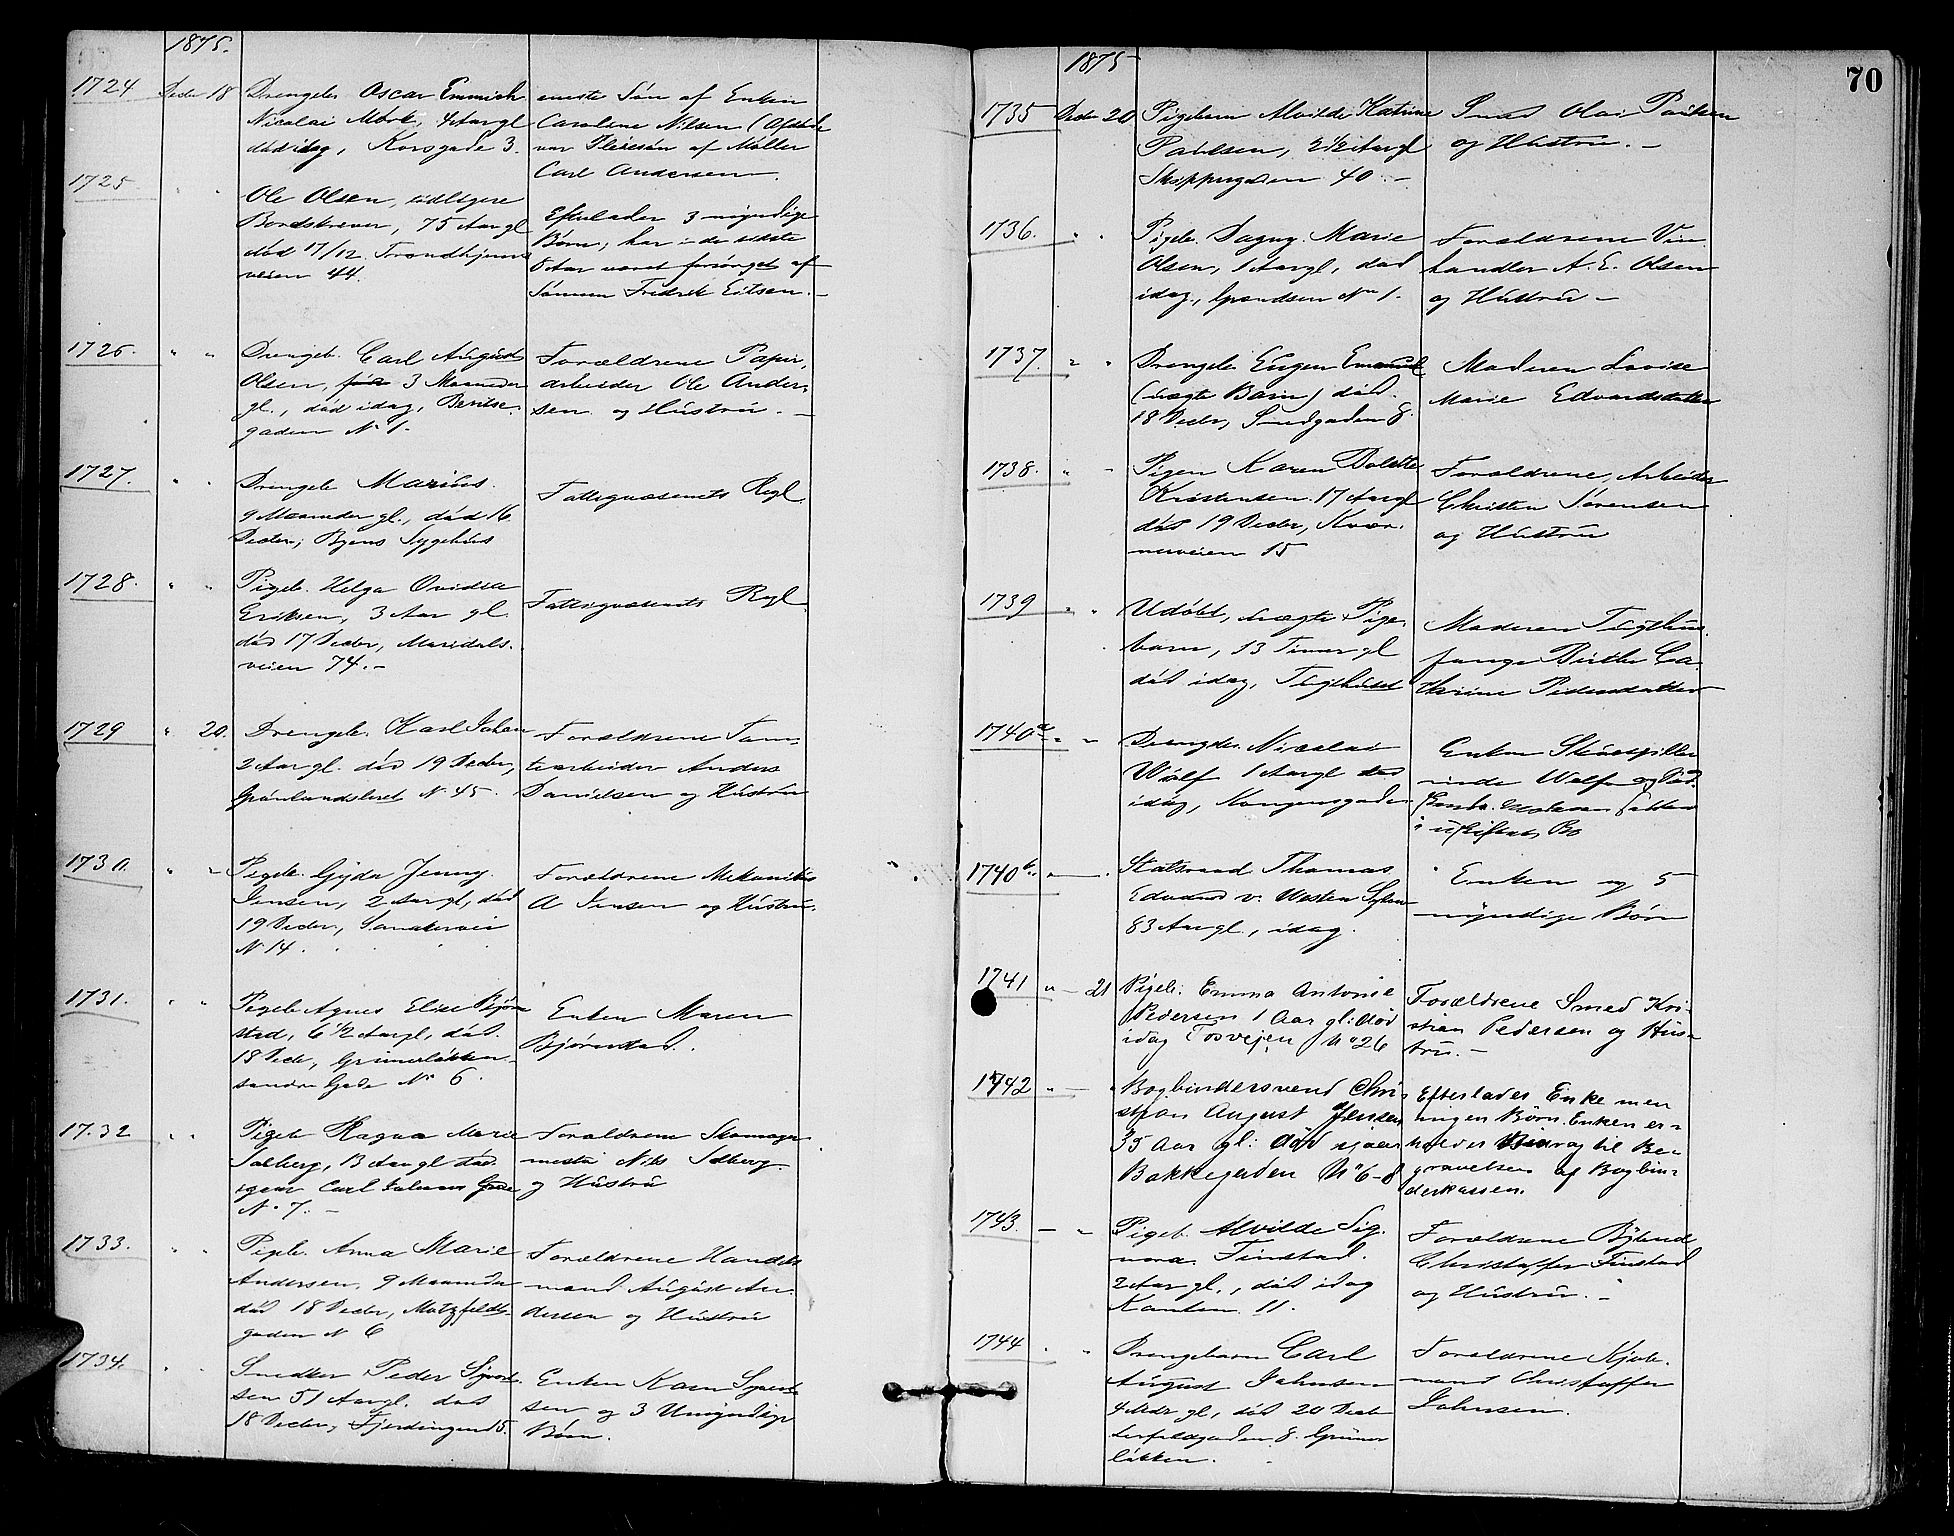 1875.
1724 Decbr 18 Drengeb. Oscar Emmich
Nicolai Mørk, 4 Aar gl
død idag, Korsgade 3.
eneste Søn af Enken
Caroline Nilsen (Afdøde
var Pleiesøn af Møller
Carl Andersen
1725. " "
Ole Olsen, tidligere
Bordskriver, 75 Aar gl
død 17/12 Trondhjems
veien 44.
Efterlader 3 myndige
Børn, har i de sidste
8 Aar været forsørget af
Sønnen Fredrik Eilsen.-
1726. " " Drengeb. Carl August
Olsen, 3 Maaneder
gl., død idag, Bentse
gaden No 1.
Forældrene Papir,
arbeider Ole Ander-
sen og Hustru. -
1727. " " Drengeb Marius.
9 Maaneder gl., død 16
Decbr, Byens Sygehus
Fattigvæsenets Regl
1728. " " Pigeb. Helga Ovidia
Eriksen, 3 Aar gl.
død 17 Decbr, Maridals.
veien 74.-
Fattigvæsenets Regl
1729 " 20. Drengeb. Karl Johan
2 Aar gl. død 19 Decbr,
Grønlandsleret No 45.
Forældrene Tom-
tearbeider Anders
Danielsen og Hustru
1730. " " Pigeb. Gyda Jenny.
Jensen, 2 Aar gl, død
19 Decbr, Sandakervei
No 14.
Forældrene Mekanikus
A Jensen og Hustru.
1731. " " Pigeb Agnes Elise Bjørn
stad, 6 1/2 Aar gl, død.
18 Decbr, Grünerløkken
søndre Gade No 6.
Enken Maren
Bjørnstad.
1732 " " Pigeb Ragna Marie
Solberg, 13 Aar gl død
igaar Carl Johans Gade
No 7. -
Forældrene Skomager
mester Nils Solberg
og Hustru
1733. " " Pigeb. Anna Marie
Andersen, 9 Maaneder
død 18 Decbr, Motzfeldts-
gaden No 6
Forældrene Handels
mand August An-
dersen og Hustru
1734. " " Snedker Peder Syvert
sen 51 Aar gl. død
18 Decbr, Fjerdingend 15.
Enken Karen Syvert
sen og 3 Umyndige
Børn.
70
1875
1735 Decbr 20 Pigebarn Alvilde Katrine
Paulsen, 2 1/2 Aar gl
Skippergaden 40. -
Smed Olai Paulsen
og Hustru. -
1736. " " Pigeb. Dagny Marie
Olsen, 1 Aar gl, død
idag, Grændsen No 1.
Forældrene Vin
handler A. E. Olsen
og Hustru -
1737. " " Drengeb Eugen Emanuel
(uægte Barn) død.
18 Decbr, Smedgaden 8.
Moderen Lovise
Marie Edvardsdatter
1738. " " Pigen Karen Dolette
Kristensen 17 Aar gl
død 19 Decbr, Kvær-
nerveien 15
Forældrene, Arbeider
Christen Sørensen
og Hustru
1739 " " Udøbt, uægte Pige-
barn, 13 Timer gl
død idag, Tugthuset
Moderen Tugthus
fange Birthe Ca-
thrine Pedersdatter
1740a " " Drengeb. Nicolai
Wolf 1 Aar gl død
idag, Kongensgade
Enken Skuespiller
inde Wolf og
Moderen sidder
i uskiftet Bo
1740b " " Statsraad Thomas
Edvard v. Westen Sylow
83 Aar gl., idag.
Enken og 5
myndige Børn
1741 " - 21 Pigeb: Emma Antonie
Pedersen 1 Aar gl: død
idag Tosvejen No 26
Forældrene Smed Kri-
stian Pedersen og Hus-
tru. -
1742 " - " Bogbindersvend Chri-
stian August Jensen
35 Aar gl: død igaar
Bakkegaden No 6-8
Efterlader Enke men
ingen Børn. Enken er-
holder Bidrag til Be-
gravelsen af Bogbin-
derkassen.
1743. - " Pigeb. Alvilde Sig
nora Finstad.
2 Aar gl., død idag
Kanten 11.
Forældrene Bybud
Christoffer Finstad
og Hustru. -
1744 " " Drengebarn Carl
August Johnsen
4 Mdr gl, død 20 Decbr
8. Grüner
løkken.
Forældrene Kjøb-
mand Christoffer
Johnsen.